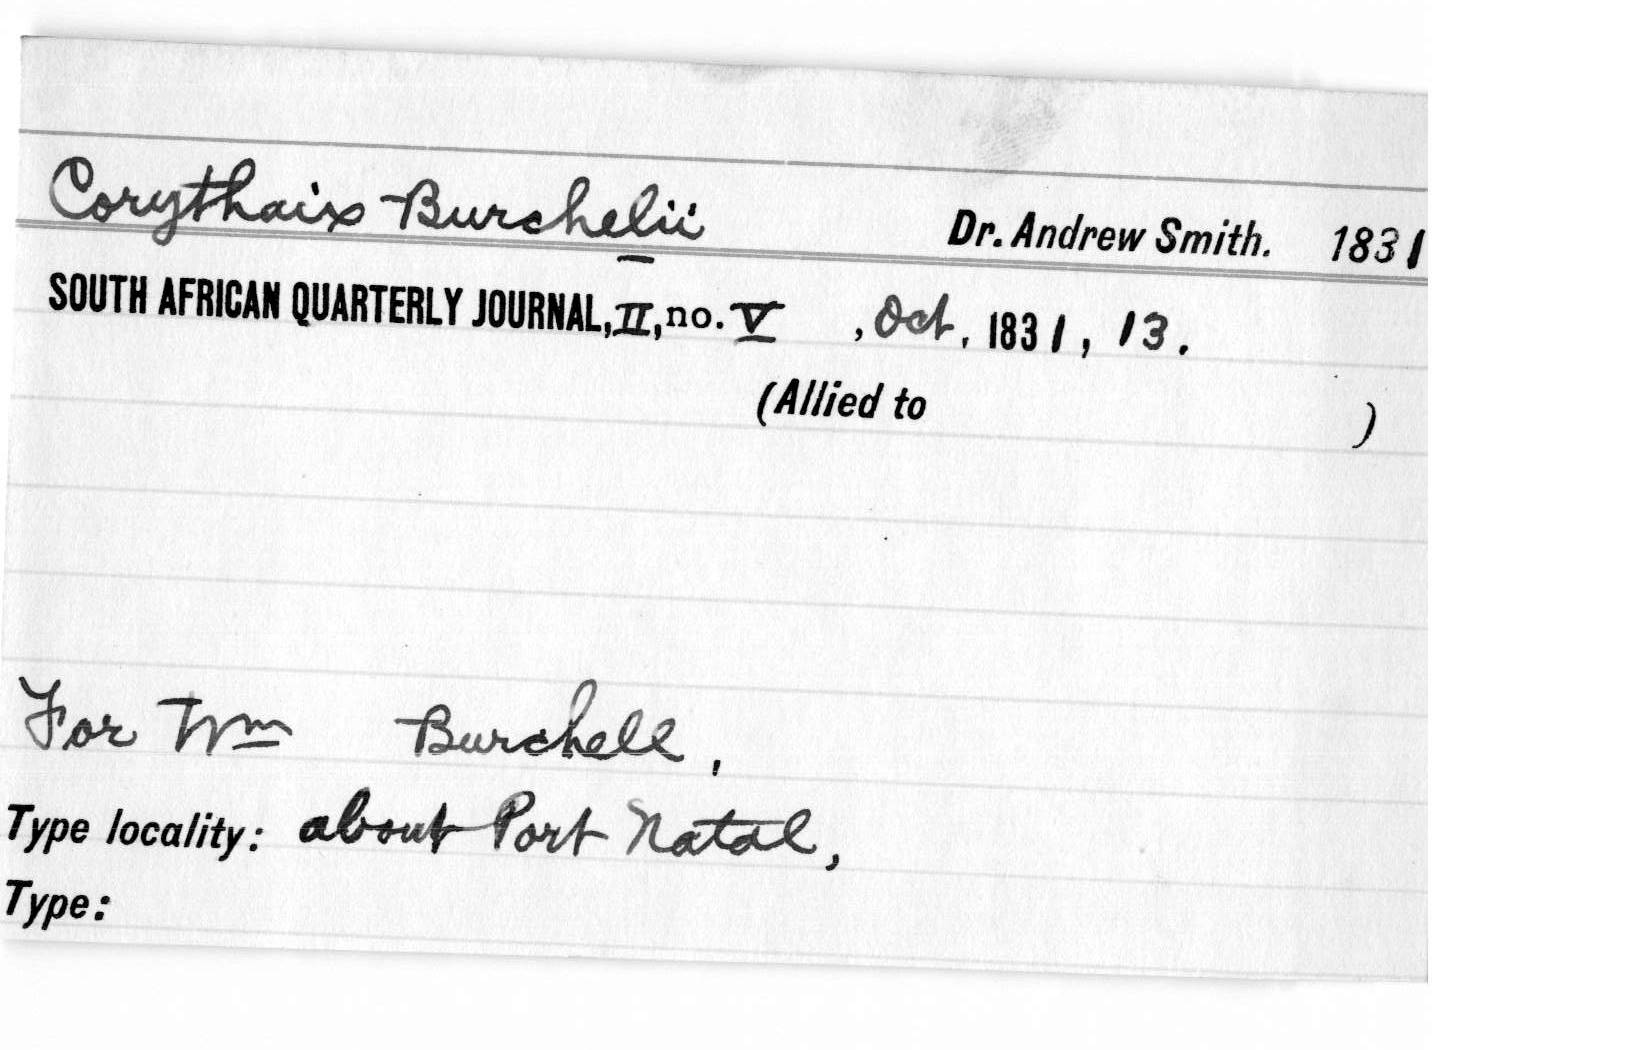 Corythaix Burchelii Dr. Andrew Smith. 1831
SOUTH AFRICAN QUARTERLY JOURNAL, II, no. V , Oct. 1831, 13.
(Allied to )
For Wm Burchell,
Type locality: about Port Natal,
Type: